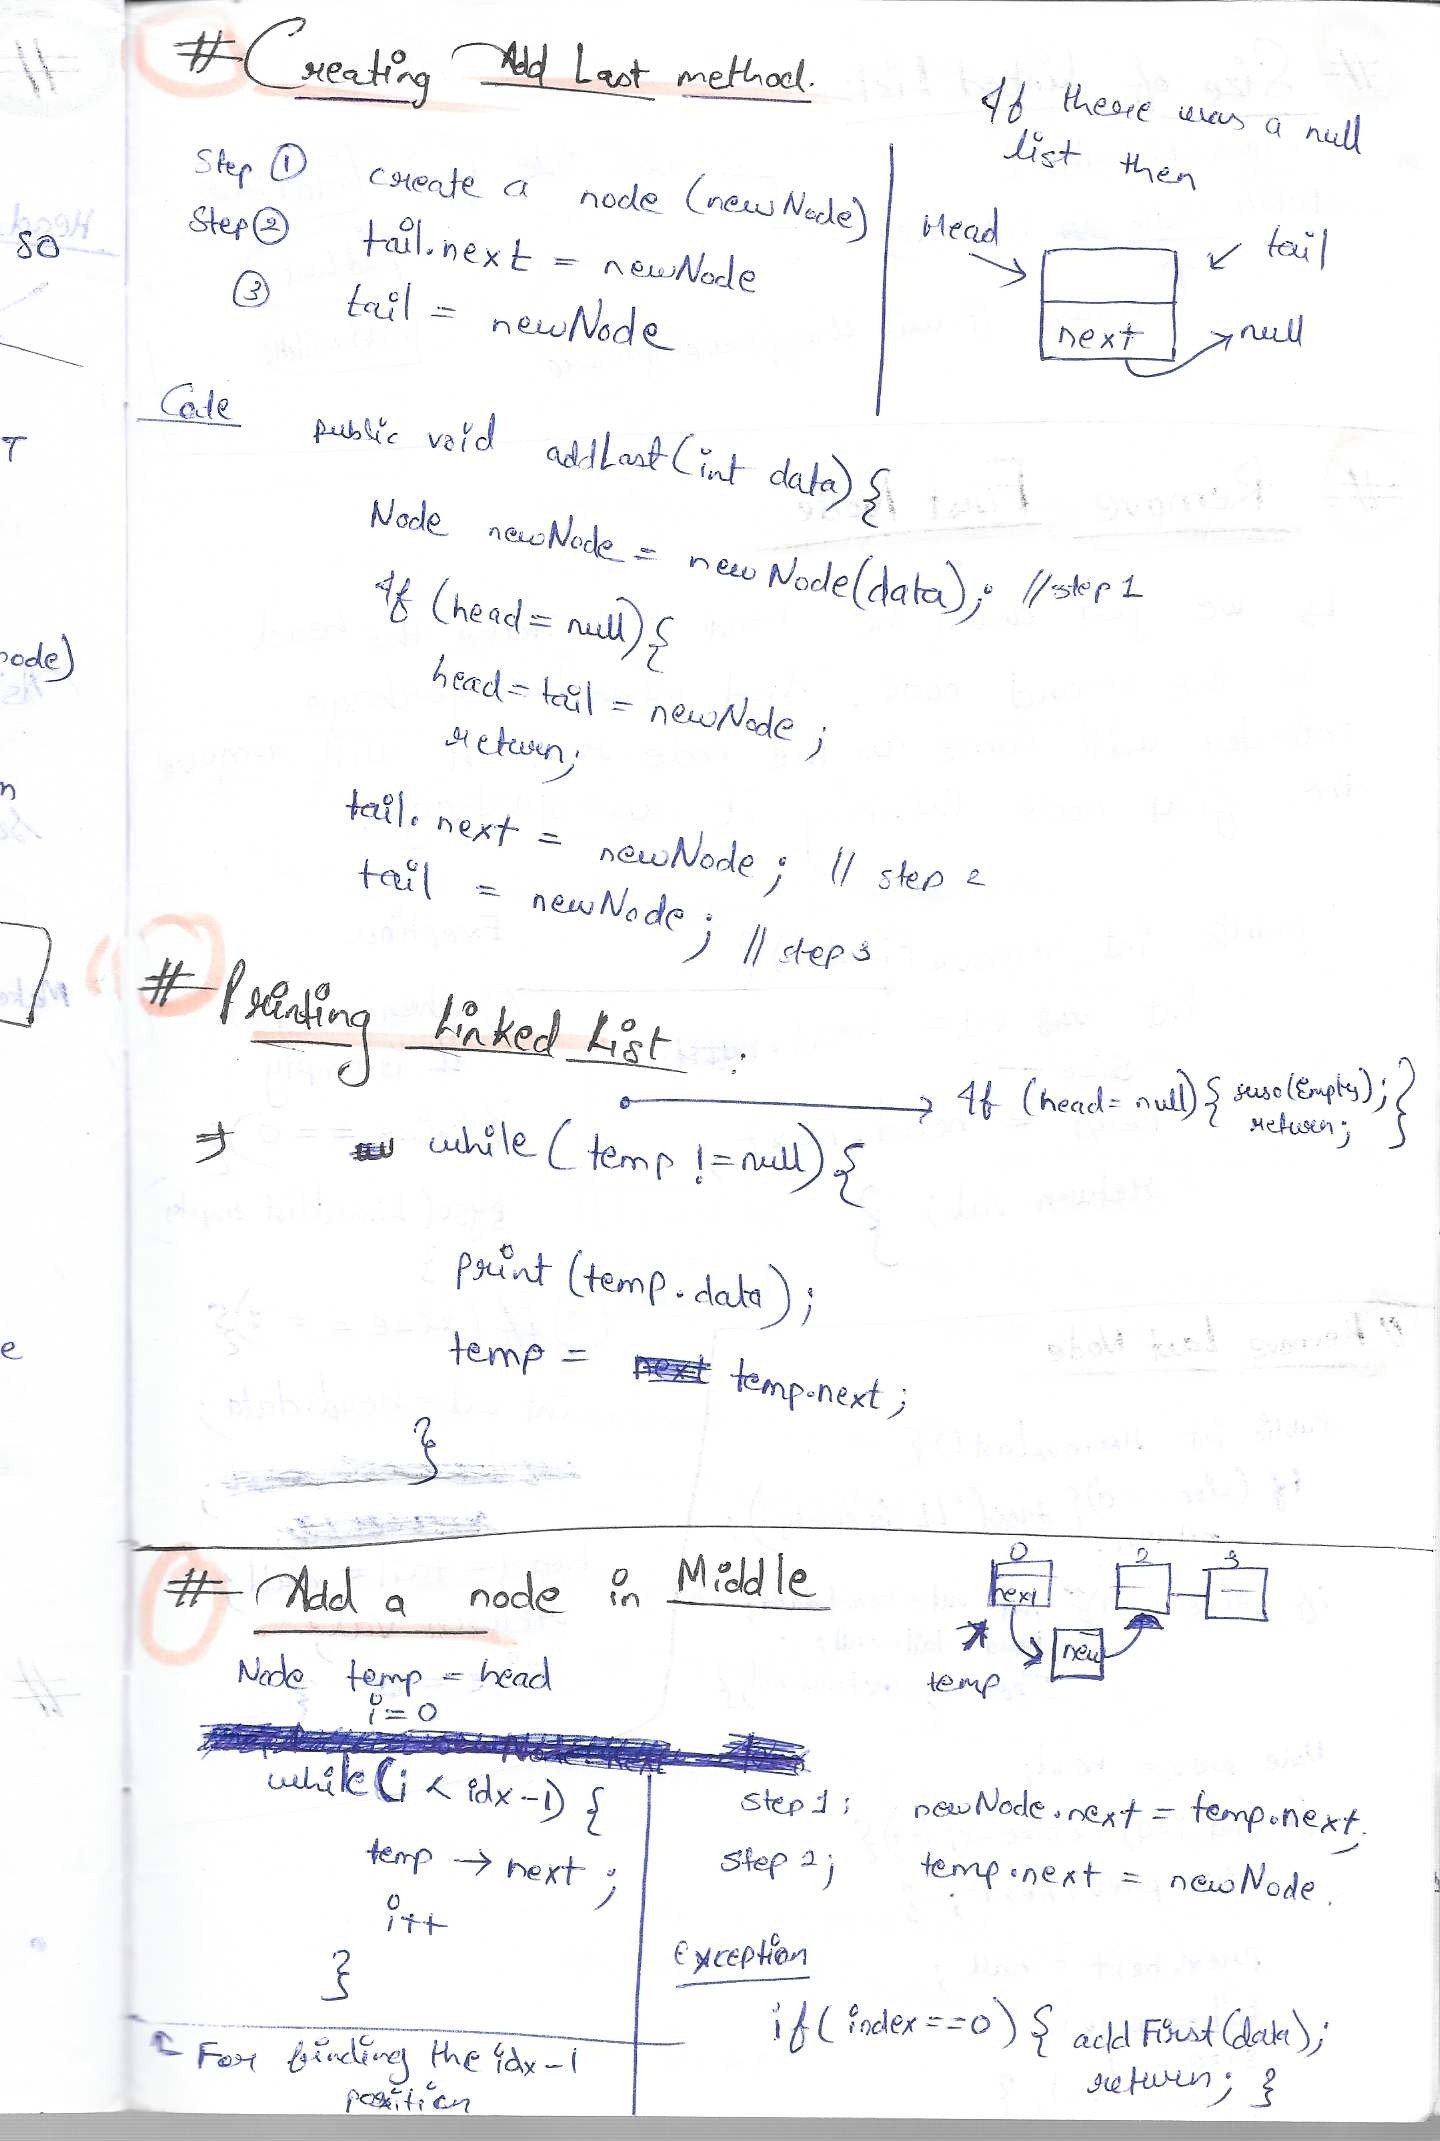 # Creating Add Last method.
If there was a null
list then
Step ① create a node (newNode)
Step ② tail.next = newNode
③ tail = newNode
Head
tail
next
null
Code
public void addLast(int data) {
Node newNode = new Node(data); //step 1
If (head = null) {
head = tail = newNode ;
return;
tail. next = newNode ; // step 2
tail = newNode ; // step 3
# Printing Linked List .
If (head = null) { suso(Empty); }
return;
⇒ while ( temp != null) {
print (temp.data);
temp = temp.next ;
}
# Add a node in Middle
0 2 3
next
new
temp
Node temp = head
i = 0
while (i < idx-1) {
temp → next ;
i++
}
For finding the idx-1
position
step 1 ; newNode.next = temp.next;
step 2 ; temp.next = newNode.
Exception
if ( index == 0 ) { add First (data);
return; }
so
T
node)
n
e